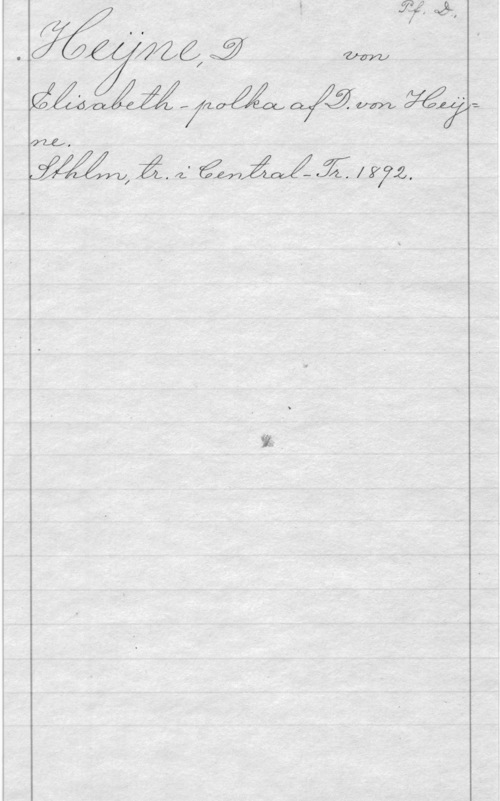 Pf. D.
Heijne, D von
Elisabeth-polka af D. von Heij=
ne.
Sthlm, tr. i Central-Tr. 1892.